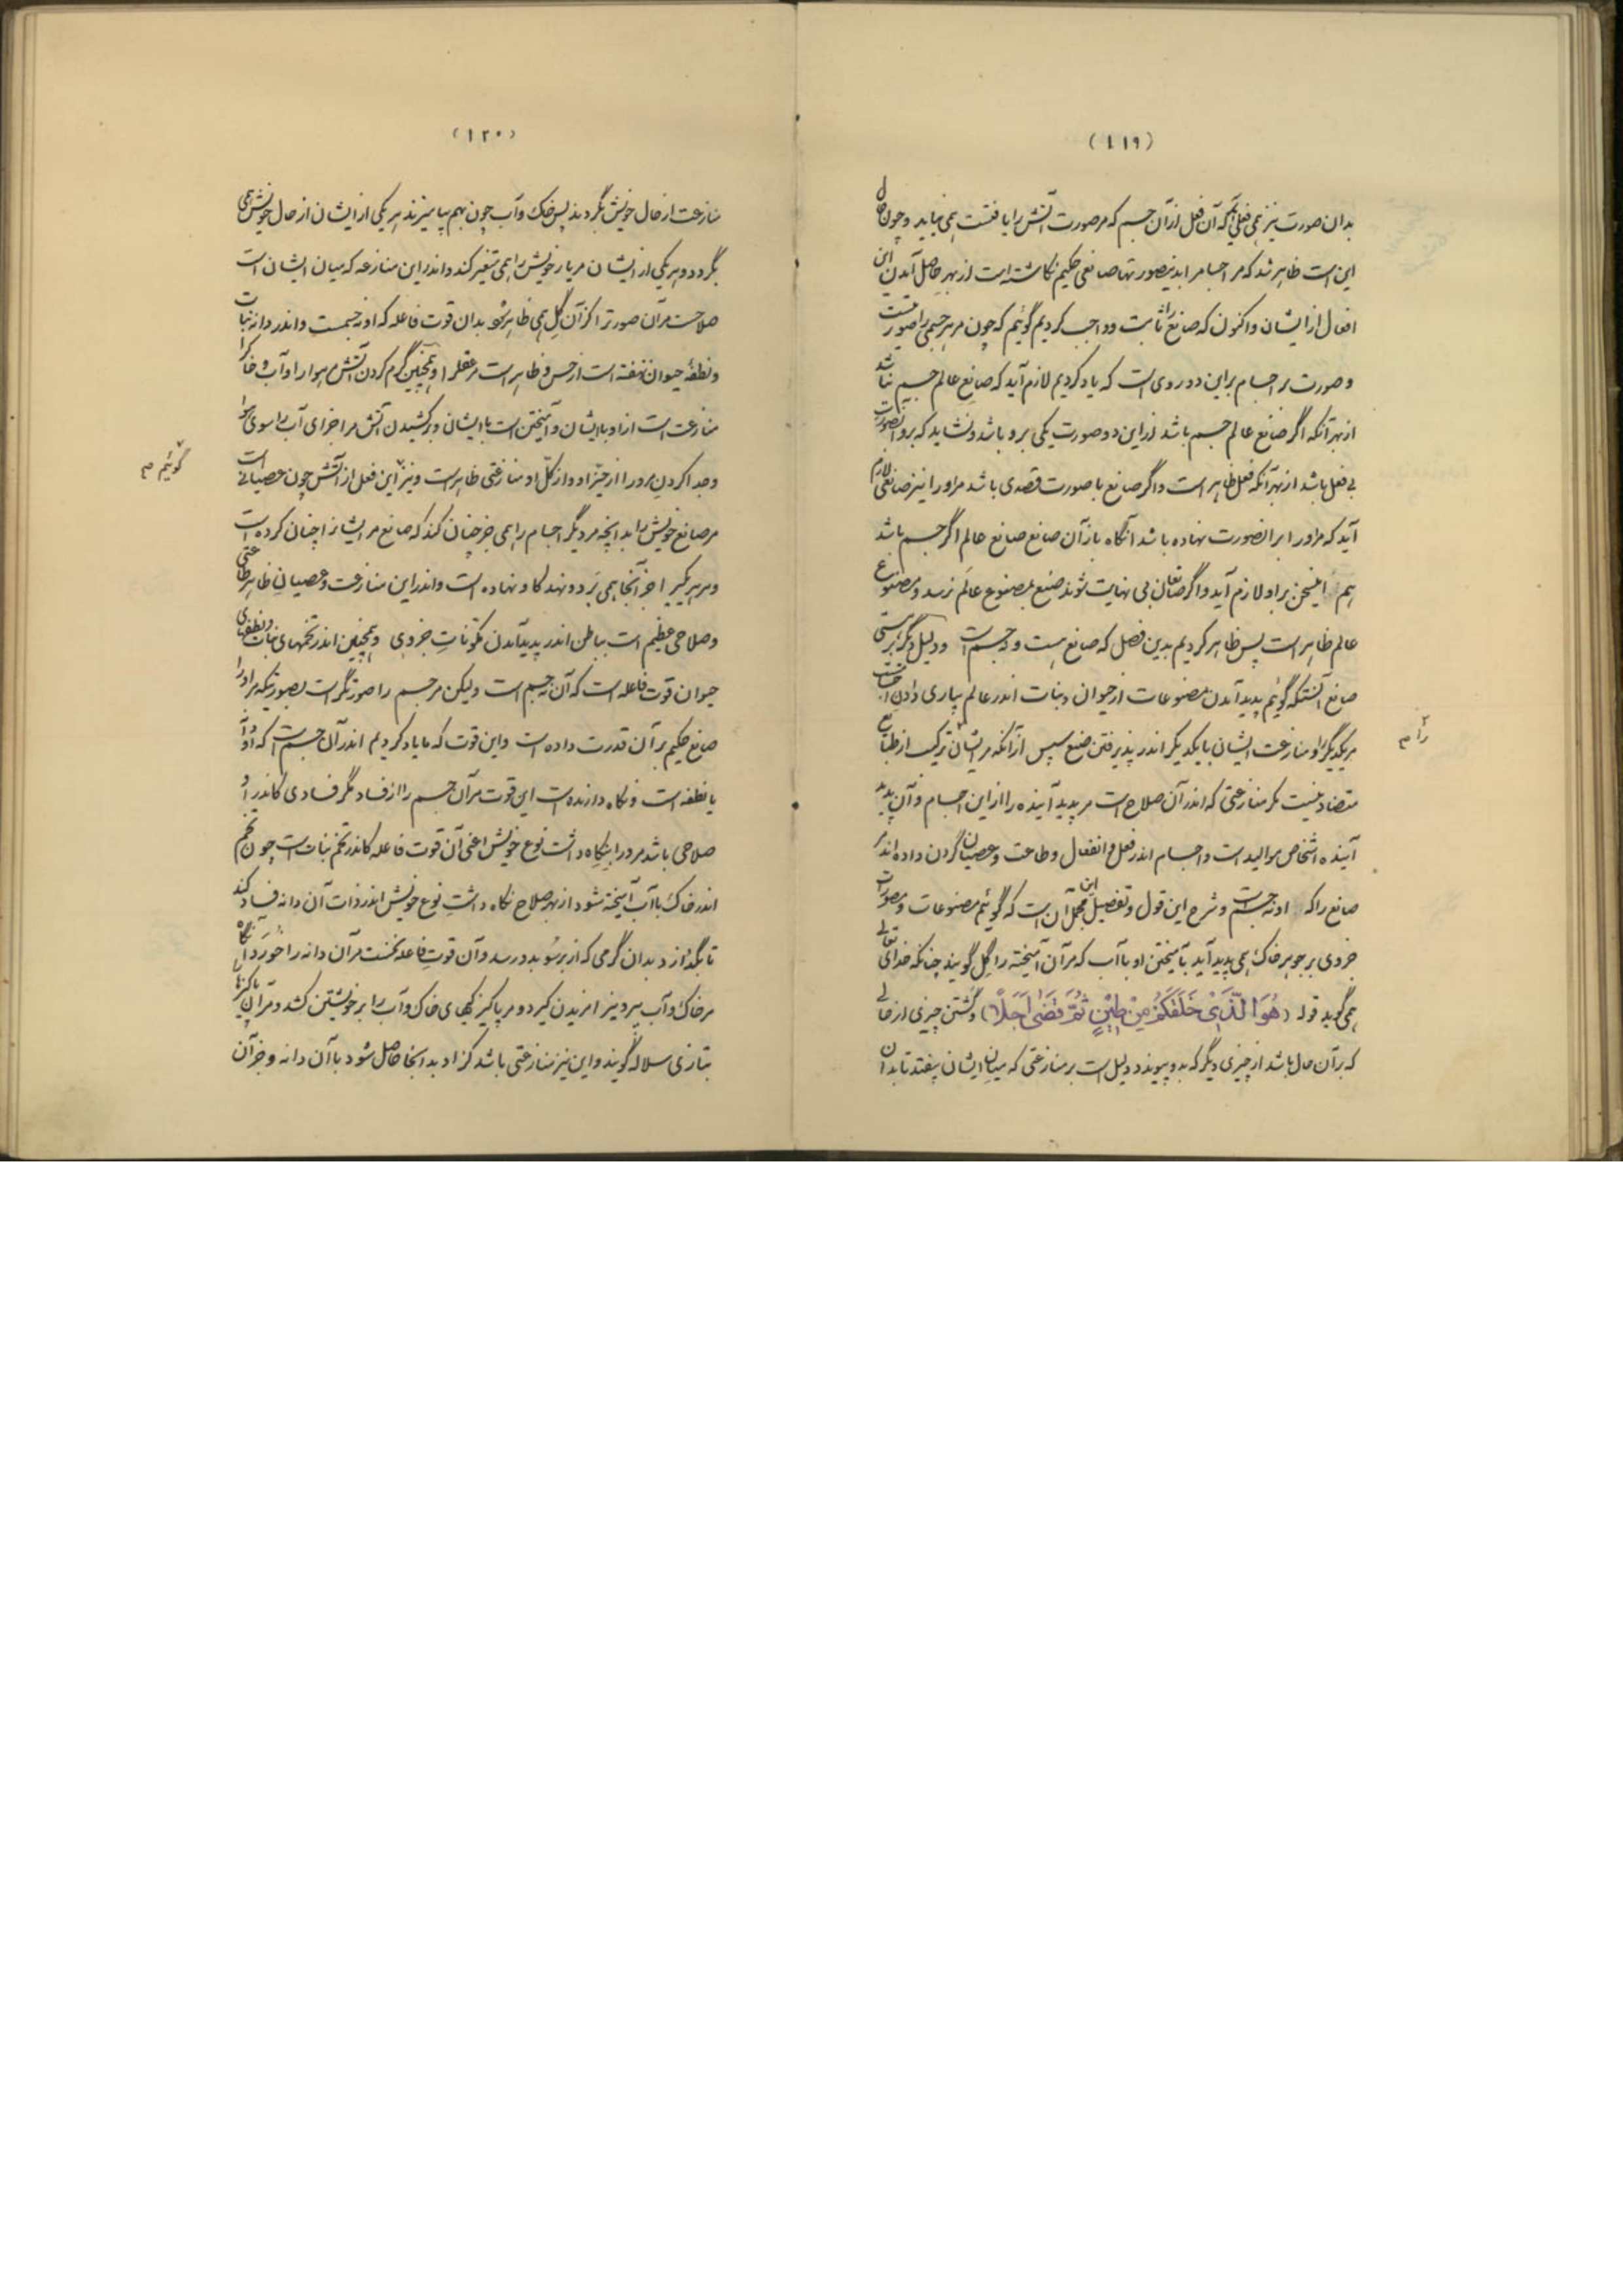 (۱۱۹)
بدان صورت نیز همی فعلی آید که آن فعل از آن جسم که مر صورت آتش را یافتست همی نیاید و چون حال
این است ظاهر شد که مر اجسام را بدین صورتها صانعی حکیم نگاشته است از بهر حاصل آمدن این
افعال از ایشان و اکنون که صانع را ثابت و واجب کردیم گوئیم که چون مر هر جسمی را صورتست
و صورت بر اجسام بر این دو روی است که یاد کردیم لازم آید که صانع عالم جسم نباشد
از بهر آنکه اگر صانع عالم جسم باشد از این دو صورت یکی برو باشد و نشاید که برو آن صورت
بی فعل باشد از بهر آنکه فعل ظاهر است و اگر صانع با صورت قصدی باشد مرورا نیز صانعی لازم
آید که مرورا بر آن صورت نهاده باشد آنگاه باز آن صانع صانع عالم اگر جسم باشد
هم این سخن بر او لازم آید و اگر صانعان بی نهایت شوند صنع بمصنوع عالم نرسد و مصنوع
عالم ظاهر است پس ظاهر کردیم بدین فصل که صانع هست و نه جسم است و دلیل دیگر بر هستی
صانع آنستکه گوئیم پدید آمدن مصنوعات از حیوان و نبات اندر عالم بیاری دادن امهاتست
مر یکدیگر را و منازعت ایشان با یکدیگر اندر پذیرفتن صنع سپس از آنکه مر ایشان ترکیب از طبایع
متضاد نیست مگر منازعتی که اندر آن صلاح است مر پدید آینده را از این اجسام و آن پدید
آینده اشخاص موالید است و اجسام اندر فعل و انفعال و طاعت و عصیان گردن داده اند مر
صانع را که او نه جسم است و شرح این قول و تفصیل این مجمل آن است که گوئیم مصنوعات و مصورات
جزوی بر جوهر خاک همی پدید آید بآمیختن او باآب که مر آن آمیخته را گل گویند چنانکه خدای تعالی
همی گوید قوله (هُوَ الَّذِي خَلَقَكُمْ مِنْ طِينٍ ثُمَّ قَضَىٰ أَجَلًا) و گشتن چیزی از حالی
که بر آن حال باشد از چیزی دیگر که بدو پیوندد دلیل است بر منازعتی که میان ایشان بیفتد تا بدان
را م
(۱۲۰)
منازعت از حال خویش بگردند پس خاک و آب چون بهم بیامیزند هر یکی از ایشان از حال خویش همی
بگردد و هر یکی از ایشان مر یار خویش را همی متغیر کند و اندر این منازعه که میان ایشان است
صلاحست مر آن صورتر اکز آن گل همی ظاهر شود بدان قوت فاعله که او نه جسمست و اندر دانه نبات
و نطفهٔ حیوان نهفته است از حس و ظاهر است مر عقل را و همچنین گرم کردن آتش مر هوا را و آب و خاک را
منازعت است از او با ایشان و آمیختن است با ایشان و بر کشیدن آتش مر اجزای آب را سوی هوا
و جدا کردن مرورا از حیز او و از کل او منازعتی ظاهر است و نیز این فعل از آتش چون عصیانی است
مر صانع خویش را بدانچه مر دیگر اجسام را همی جز چنان کند که صانع مر ایشانرا چنان کرده است
و مر هر یکی را جز آنجا همی برد و نهد کاو نهاده است و اندر این منازعت و عصیان ظاهر طاعتی
و صلاحی عظیم است بباطن اندر پدید آمدن مکونات جزوی و همچنین اندر تخمهای نبات و نطفهای
حیوان قوت فاعله است که آن نه جسم است ولیکن مر جسم را صورتگر است بصورتیکه مر او را
صانع حکیم بر آن قدرت داده است و این قوت که ما یاد کردیم اندر آن جسم است که او دانه
یا نطفه است و نگاه دارنده است این قوت مر آن جسم را از فساد مگر فسادی کاندر او
صلاحی باشد مرورا بنگاه داشت نوع خویش اعنی آن قوت فاعله کاندر تخم نبات است چون تخم
اندر خاک با آب آمیخته شود از بهر صلاح نگاه داشت نوع خویش اندر ذات آن دانه فساد کند
تا بگدازد بدان گرمی که از بر سو بدو رسد و آن قوت فاعله نخست مر آن دانه را خورد آنگاه
مر خاک و آب بیرون را مزیدن گیرد و مر پاکیزگیهای خاک و آب را بر خویشتن کشد و مر آن پاکیزها را
بتازی سلاله گویند و این نیز منازعتی باشد کز او بدانجا حاصل شود با آن دانه و جز آن
گوئیم م